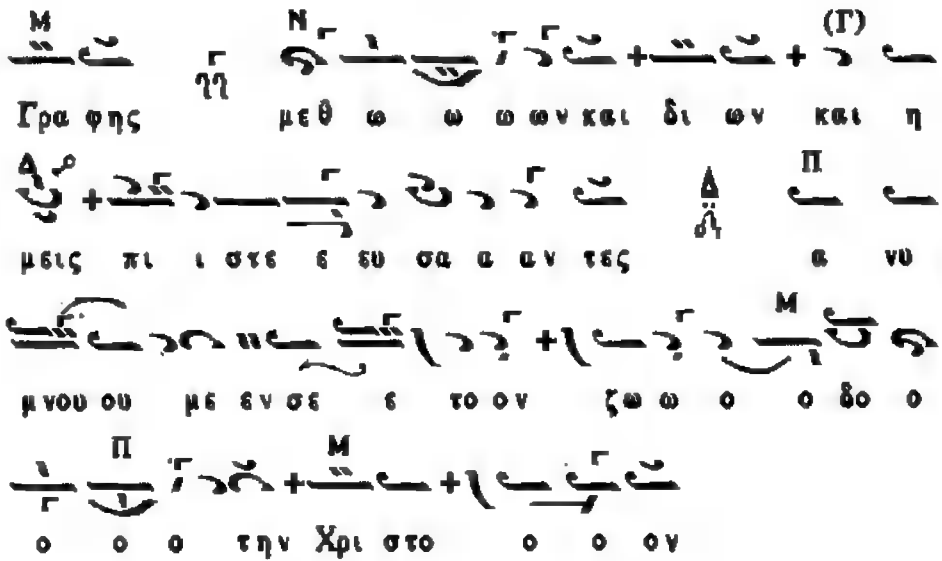 Μ Ν (Γ)
Γρα φης με θ ω ω ω ων και δι ων και η
Δ Δ Π
μεις πι ι στε ε ευ σα α αν τες α νυ
Μ
μνου ου με εν σε ε το ον ζω ω ο ο δο ο
Π Μ
ο ο ο την Χρι στο ο ο ον